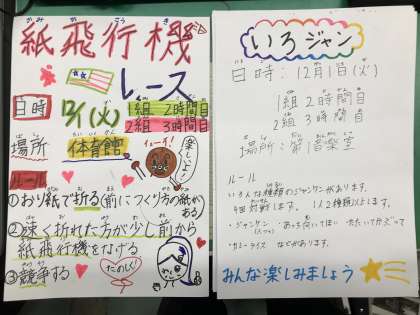 紙飛行機
レース
日時 12/1(火) 1組 2時間目
2組 3時間目
場所 体育館
楽しよ!
ルール
①おり紙で折る(前につくり方の紙がある)
②速く折れた方が少し前から
紙飛行機をなげる
③競争する
たのしく!
いろジャン
日時:12月1日(火)
1組2時間目
2組3時間目
場所:第1音楽室
ルール
いろんな種類のジャンケンがあります。
4回対戦します。1人2種類以上します。
・ジャンケン
・あっち向いてほい
・たたいてかぶって
・カレーライス などがあります。
みんな楽しみましょう